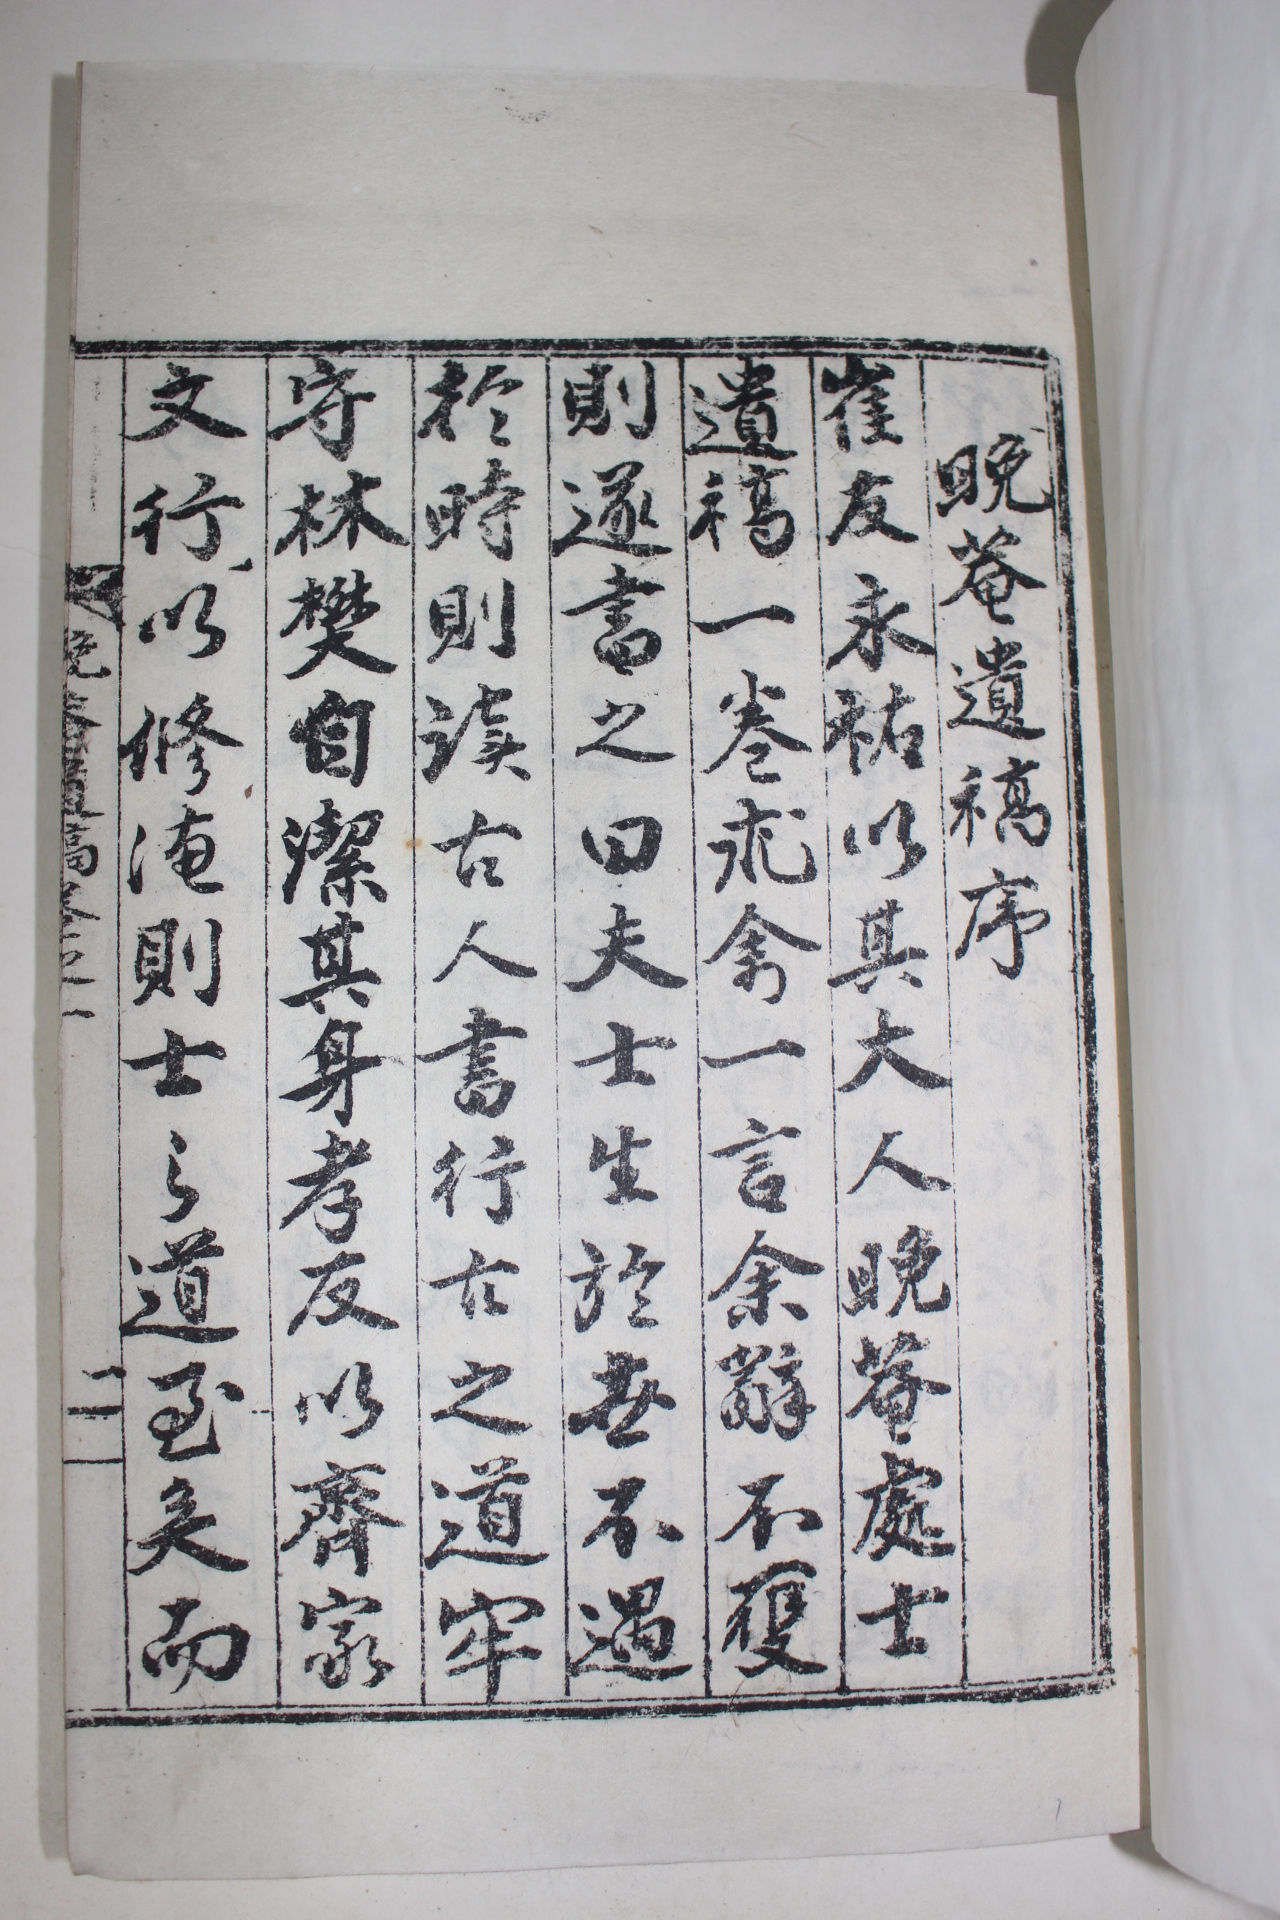 晚菴遺稿序
崔友永祐以其大人晚菴處士
遺稿一卷求余一言余辭不獲
則遂書之曰夫士生於世不遇
於時則讀古人書行古之道牢
守林樊自潔其身孝友以齊家
文行以修淹則士之道至矣而
晚菴遺稿卷之一
二